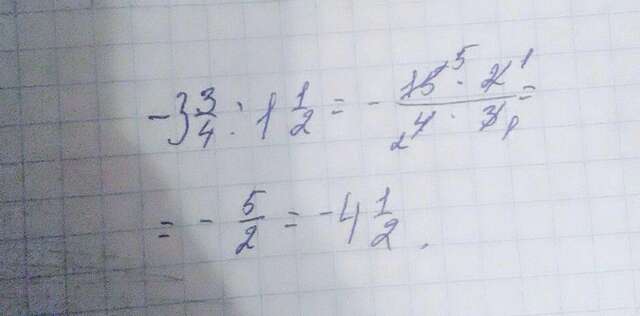 -3 3/4 : 1 1/2 = - 15 5 · 2 1 / 2 4 · 3 1 =
= - 5/2 = -4 1/2.